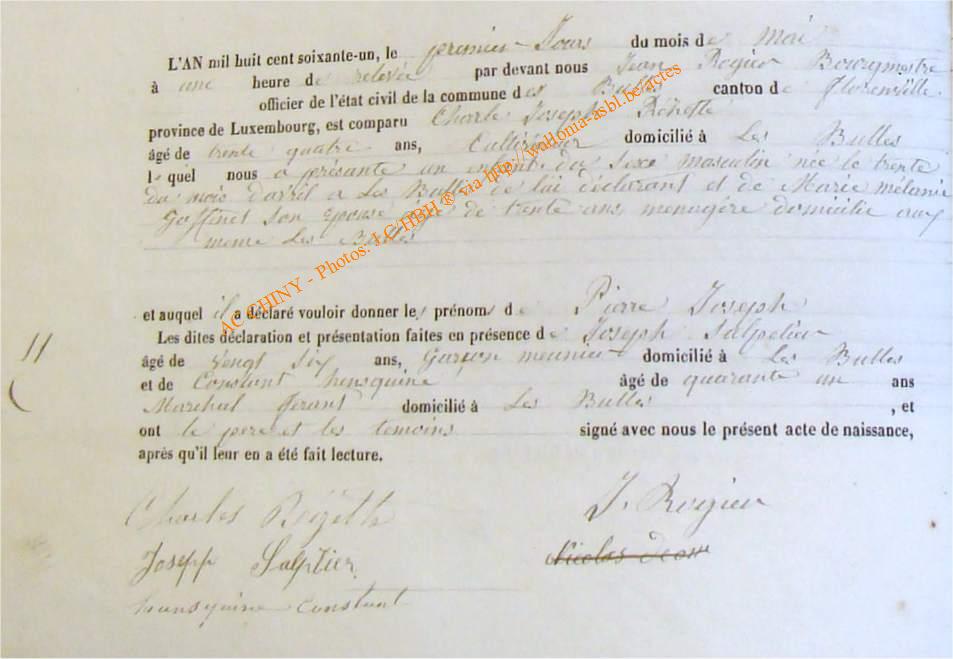 L'AN mil huit cent soixante-un, le premier Jour du mois de Mai
à une heure de relevée par devant nous Jean Rogier Bourgmestre
officier de l'état civil de la commune des Bulles canton de florenville.
province de Luxembourg, est comparu Charle Joseph
âgé de trente quatre ans, Cultivateur domicilié à Les Bulles
lequel nous a présante un enfant du Sexe masculin née le trente
du mois davril a Les Bulles de lui déclarant et de Marie mélanie
Goffinet son epouse de trente ans menagère domicilie aux
meme Les Bulles
et auquel il a déclaré vouloir donner les prénoms de Pierre Joseph
Les dites déclaration et présentation faites en présence de Joseph Salpetier
11
âgé de vengt Six ans, Garçon meunier domicilié à Les Bulles
et de Constant hensquine âgé de quarante un ans
Marechal ferant domicilié à Les Bulles , et
ont le pere et les temoins signé avec nous le présent acte de naissance,
après qu'il leur en a été fait lecture.
Charles
J. Rogier
Joseph Salptier
Nicolas
hensquine Constant
AC CHINY - Photos: J.C. HBH ® via http://wallonia-asbl.be/actes